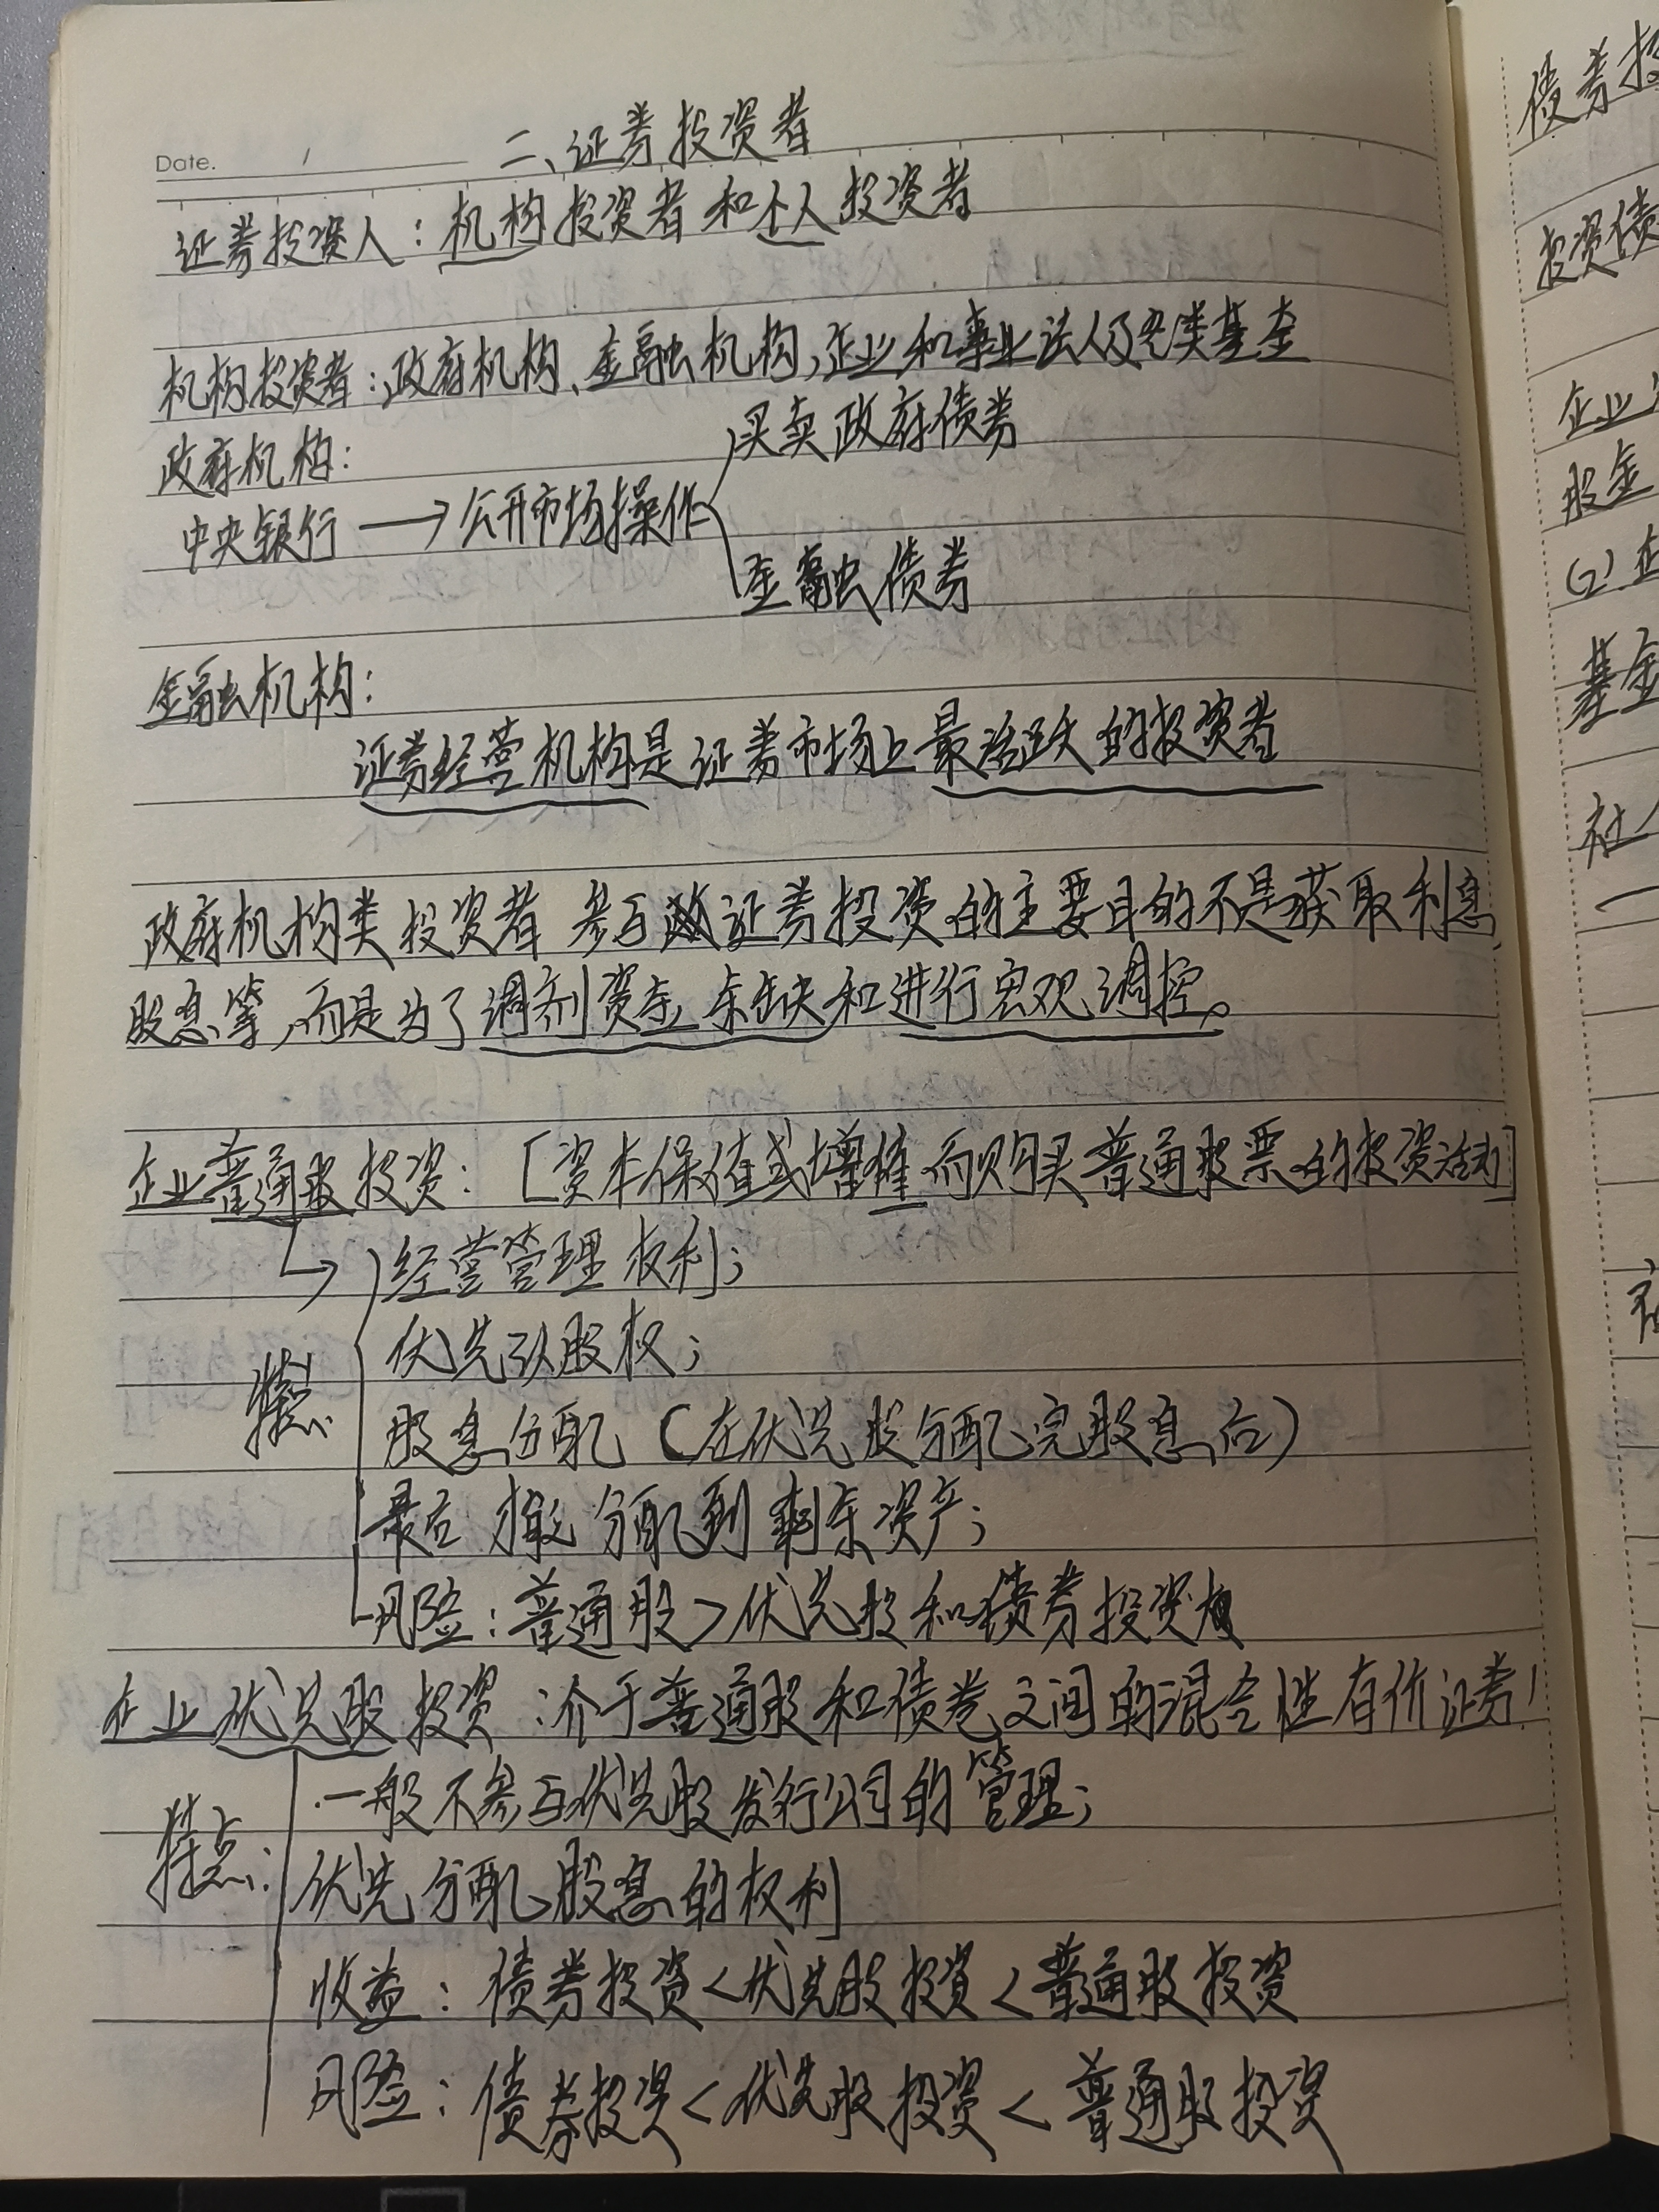 Date.
二、证券投资者
证券投资人：机构投资者和个人投资者
机构投资者：政府机构、金融机构，企业和事业法人及各类基金
政府机构：
买卖政府债券
中央银行 → 公开市场操作
金融债券
金融机构：
证券经营机构是证券市场上最活跃的投资者
政府机构类投资者 参与证券投资的主要目的不是获取利息
股息等，而是为了调剂资金余缺和进行宏观调控。
企业普通股投资：[资本保值或增值而购买普通股票的投资活动]
→ 经营管理权利；
优先认股权；
特点
股息分配（在优先股分配完股息后）
最后 分配到剩余资产；
风险：普通股>优先股和债券投资
企业优先股投资：介于普通股和债卷之间的混合性有价证券
一般不参与优先股发行公司的管理；
特点：
优先分配股息的权利
收益：债券投资<优先股投资<普通股投资
风险：债券投资<优先股投资<普通股投资
债券投
投资债
企业
股金
(2)企
基金
社